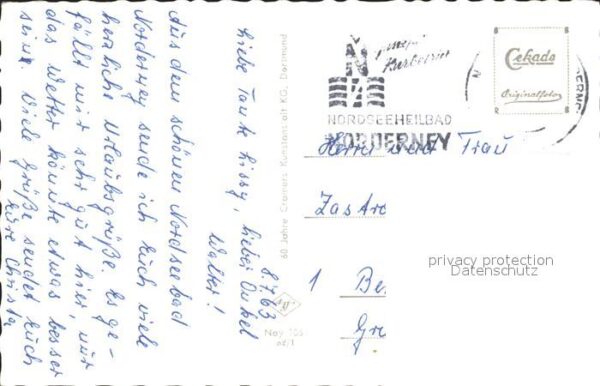 8.7.63
Liebe Tante Lissy, lieber Onkel
Walter!
Aus dem schönen Nordseebad
Norderney sende ich Euch viele
herzliche Urlaubsgrüße. Es ge-
fällt mir sehr gut hier, nur
das Wetter könnte etwas besser
sein. Viele Grüße sendet Euch
Eure Christa
60 Jahre Cramers Kunstanstalt KG, Dortmund
Noy 105
NORDSEEHEILBAD
NORDERNEY
Cekade
Originalfoto
Herrn und Frau
1 Be
Gr
privacy protection
Datenschutz